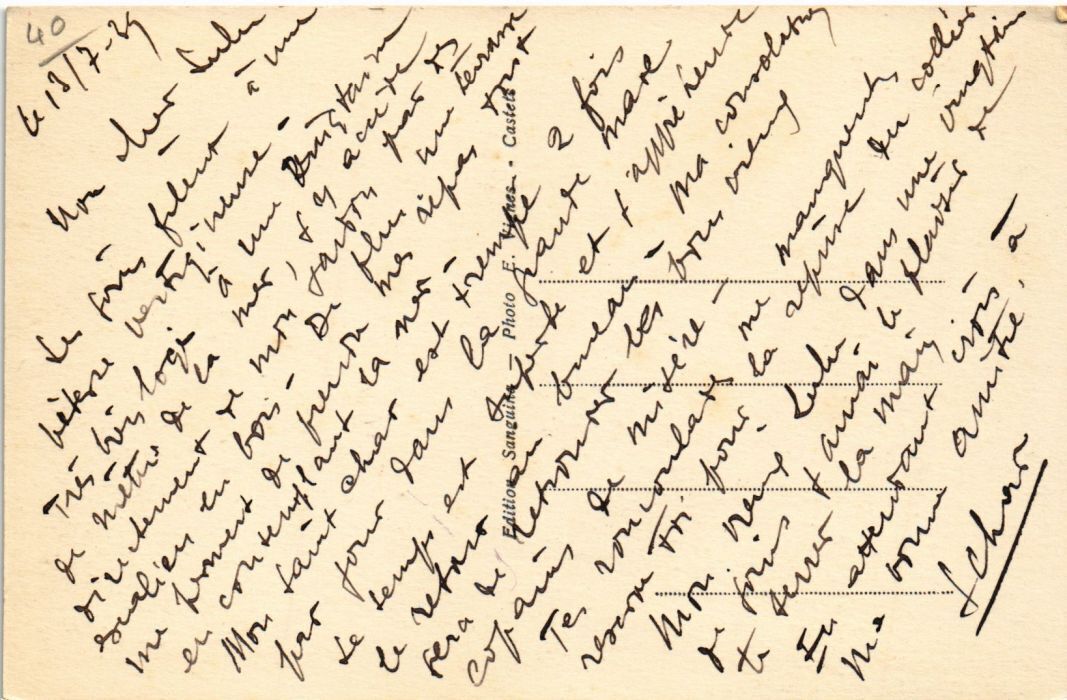 40
le 13/7-39
Mon cher Lulu
Les jours filent à une
vitesse vertigineuse.
Très bien logé à une vingtaine
de mètres de la mer, j'y accède
directement de mon jardin par des
escaliers en bois. De plus une terrasse
me permet de prendre mes repas tout
en contemplant la mer
Mon Saint char est trempé 2 fois
par jour dans la grande mare
Le temps est superbe et j'appréhende
le retour au bureau. Ma consolation
sera de retrouver les bons vieux
copains de misère -
Tes roucoulades me manquent,
pour la reprise du collier
Mon vieux Lulu dans une vingtaine
de jours j'aurai le plaisir de
te serrer la main
En attendant crois à
ma bonne amitié,
Edition Sanguina Photo E. Vignes - Castets